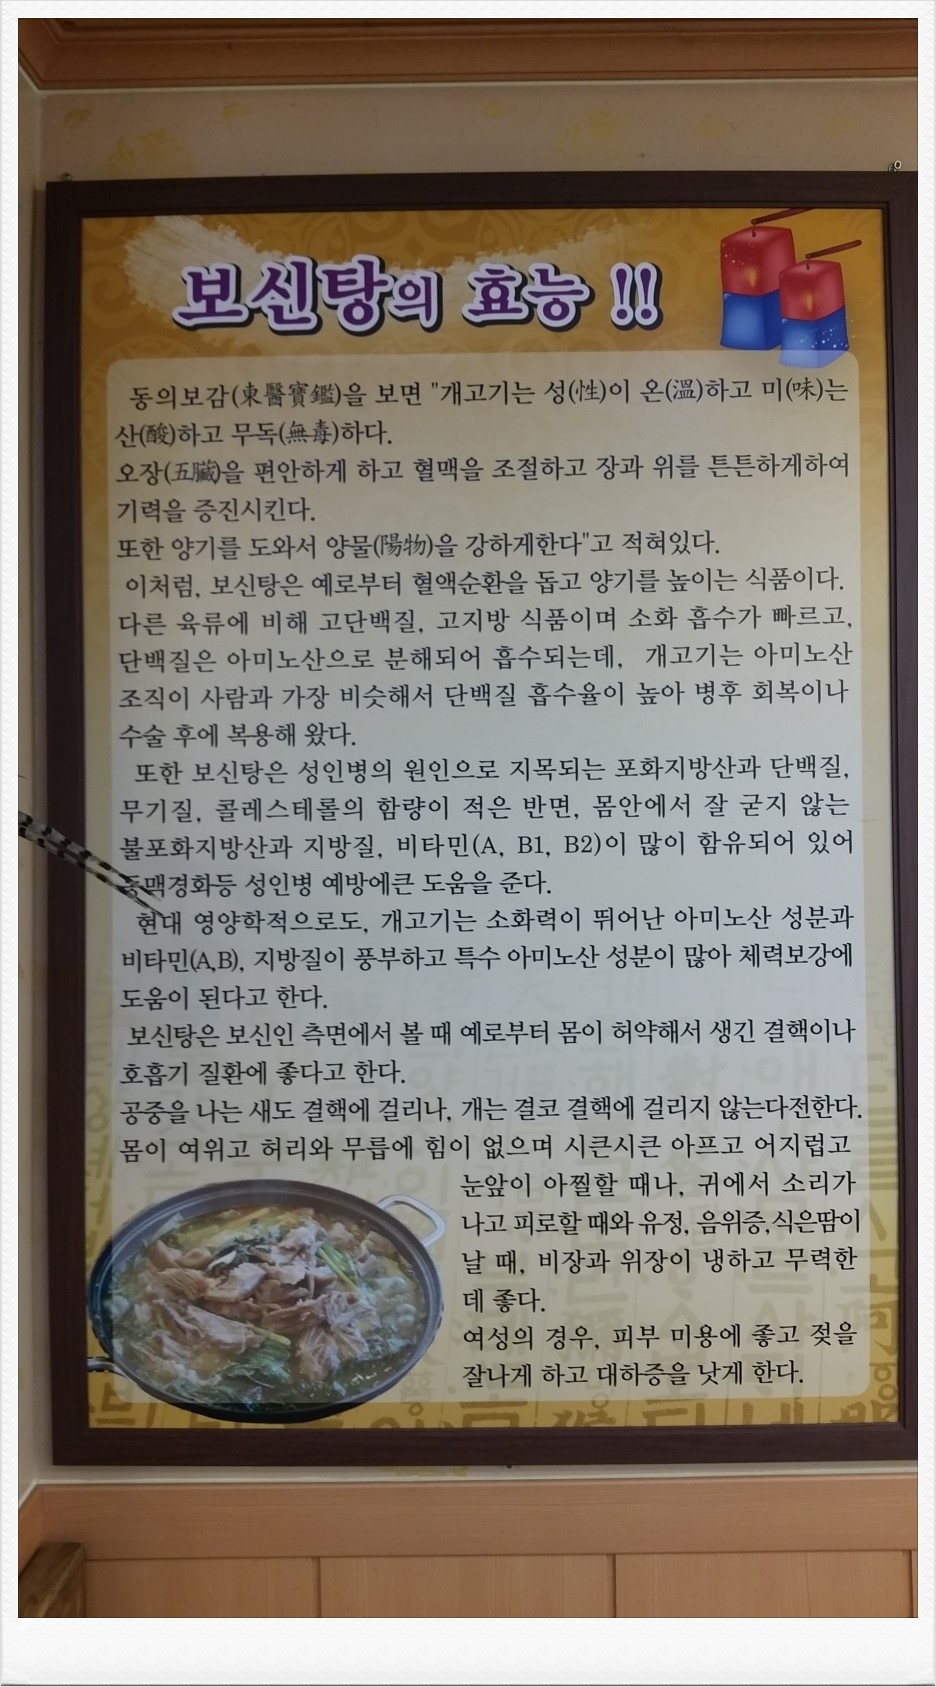 보신탕의 효능 !!
동의보감(東醫寶鑑)을 보면 "개고기는 성(性)이 온(溫)하고 미(味)는
산(酸)하고 무독(無毒)하다.
오장(五臟)을 편안하게 하고 혈맥을 조절하고 장과 위를 튼튼하게하여
기력을 증진시킨다.
또한 양기를 도와서 양물(陽物)을 강하게한다"고 적혀있다.
이처럼, 보신탕은 예로부터 혈액순환을 돕고 양기를 높이는 식품이다.
다른 육류에 비해 고단백질, 고지방 식품이며 소화 흡수가 빠르고,
단백질은 아미노산으로 분해되어 흡수되는데, 개고기는 아미노산
조직이 사람과 가장 비슷해서 단백질 흡수율이 높아 병후 회복이나
수술 후에 복용해 왔다.
또한 보신탕은 성인병의 원인으로 지목되는 포화지방산과 단백질,
무기질, 콜레스테롤의 함량이 적은 반면, 몸안에서 잘 굳지 않는
불포화지방산과 지방질, 비타민(A, B1, B2)이 많이 함유되어 있어
동맥경화등 성인병 예방에큰 도움을 준다.
현대 영양학적으로도, 개고기는 소화력이 뛰어난 아미노산 성분과
비타민(A,B), 지방질이 풍부하고 특수 아미노산 성분이 많아 체력보강에
도움이 된다고 한다.
보신탕은 보신인 측면에서 볼 때 예로부터 몸이 허약해서 생긴 결핵이나
호흡기 질환에 좋다고 한다.
공중을 나는 새도 결핵에 걸리나, 개는 결코 결핵에 걸리지 않는다전한다.
몸이 여위고 허리와 무릎에 힘이 없으며 시큰시큰 아프고 어지럽고
눈앞이 아찔할 때나, 귀에서 소리가
나고 피로할 때와 유정, 음위증,식은땀이
날 때, 비장과 위장이 냉하고 무력한
데 좋다.
여성의 경우, 피부 미용에 좋고 젖을
잘나게 하고 대하증을 낫게 한다.